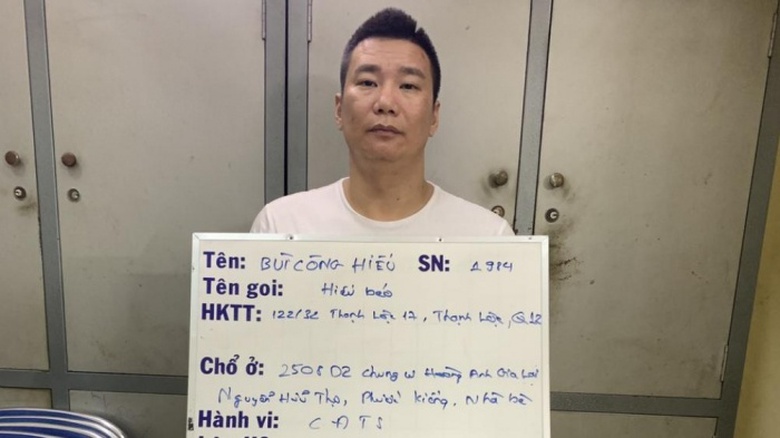 Tên: BÙI CÔNG HIẾU SN: 1984
Tên gọi: Hiếu béo
HKTT: 122/32 Thạnh Lộc 17, Thạnh Lộc, Q12
Chổ ở: 2506 D2 chung cư Hoàng Anh Gia Lai
Nguyễn Hữu Thọ, Phước kiểng, Nhà bè
Hành vi: CATS